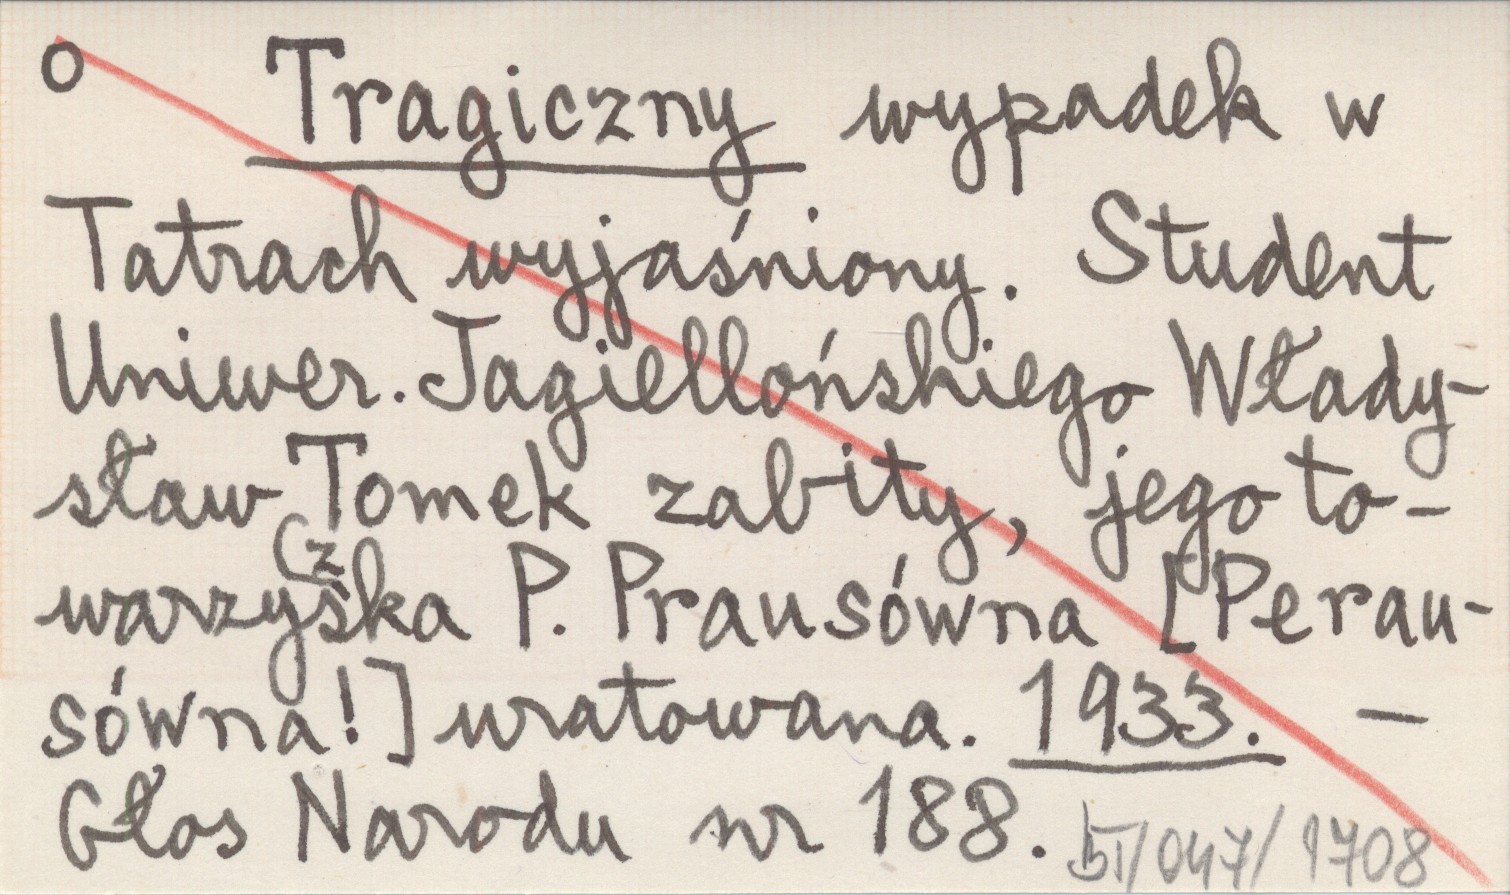 o Tragiczny wypadek w
Tatrach wyjaśniony. Student
Uniwer. Jagiellońskiego Włady-
sław Tomek zabity, jego to-
(z
warzyska P. Prausówna [Perau-
sówna!] uratowana. 1933. —
Głos Narodu nr 188.
/047/1708